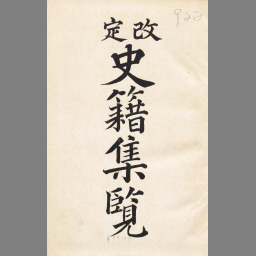 改定
史籍集覽
922